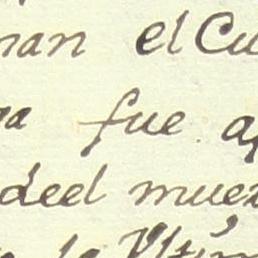 man el Cu
ra fue ap
deel muer
la Vltim